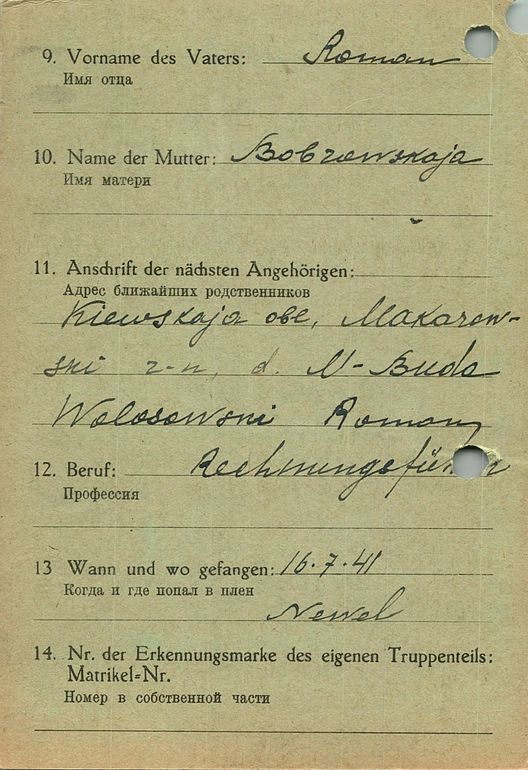 9. Vorname des Vaters: Roman
Имя отца
10. Name der Mutter: Bobrowskaja
Имя матери
11. Anschrift der nächsten Angehörigen:
Адрес ближайших родственников
Kiewskaja obl, Makarow-
ski r-n, d. M-Buda
Wolosowski Roman
12. Beruf: Rechnungsführer
Профессия
13 Wann und wo gefangen: 16.7.41
Когда и где попал в плен
Newel
14. Nr. der Erkennungsmarke des eigenen Truppenteils:
Matrikel-Nr.
Номер в собственной части